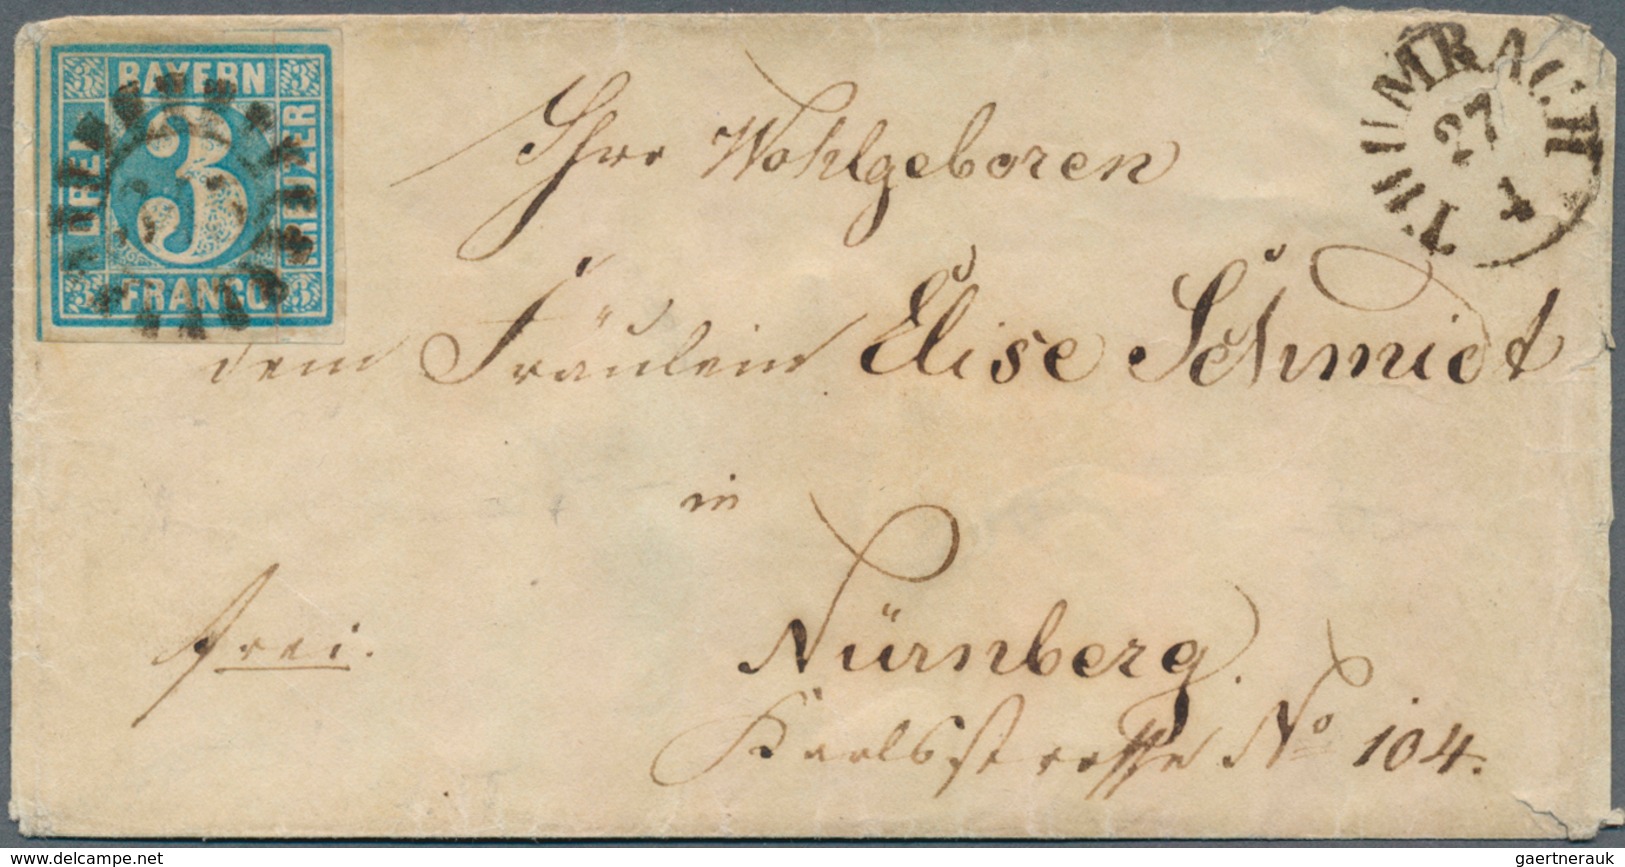 BAYERN
3
DREI
KREUZER
FRANCO
THUMBACH
27
1
Ihro Wohlgeboren
dem Fräulein Elise Schmidt
in
frei.
Nürnberg.
Karlsstrasse No 104.
www.delcampe.net
gaertnerauk